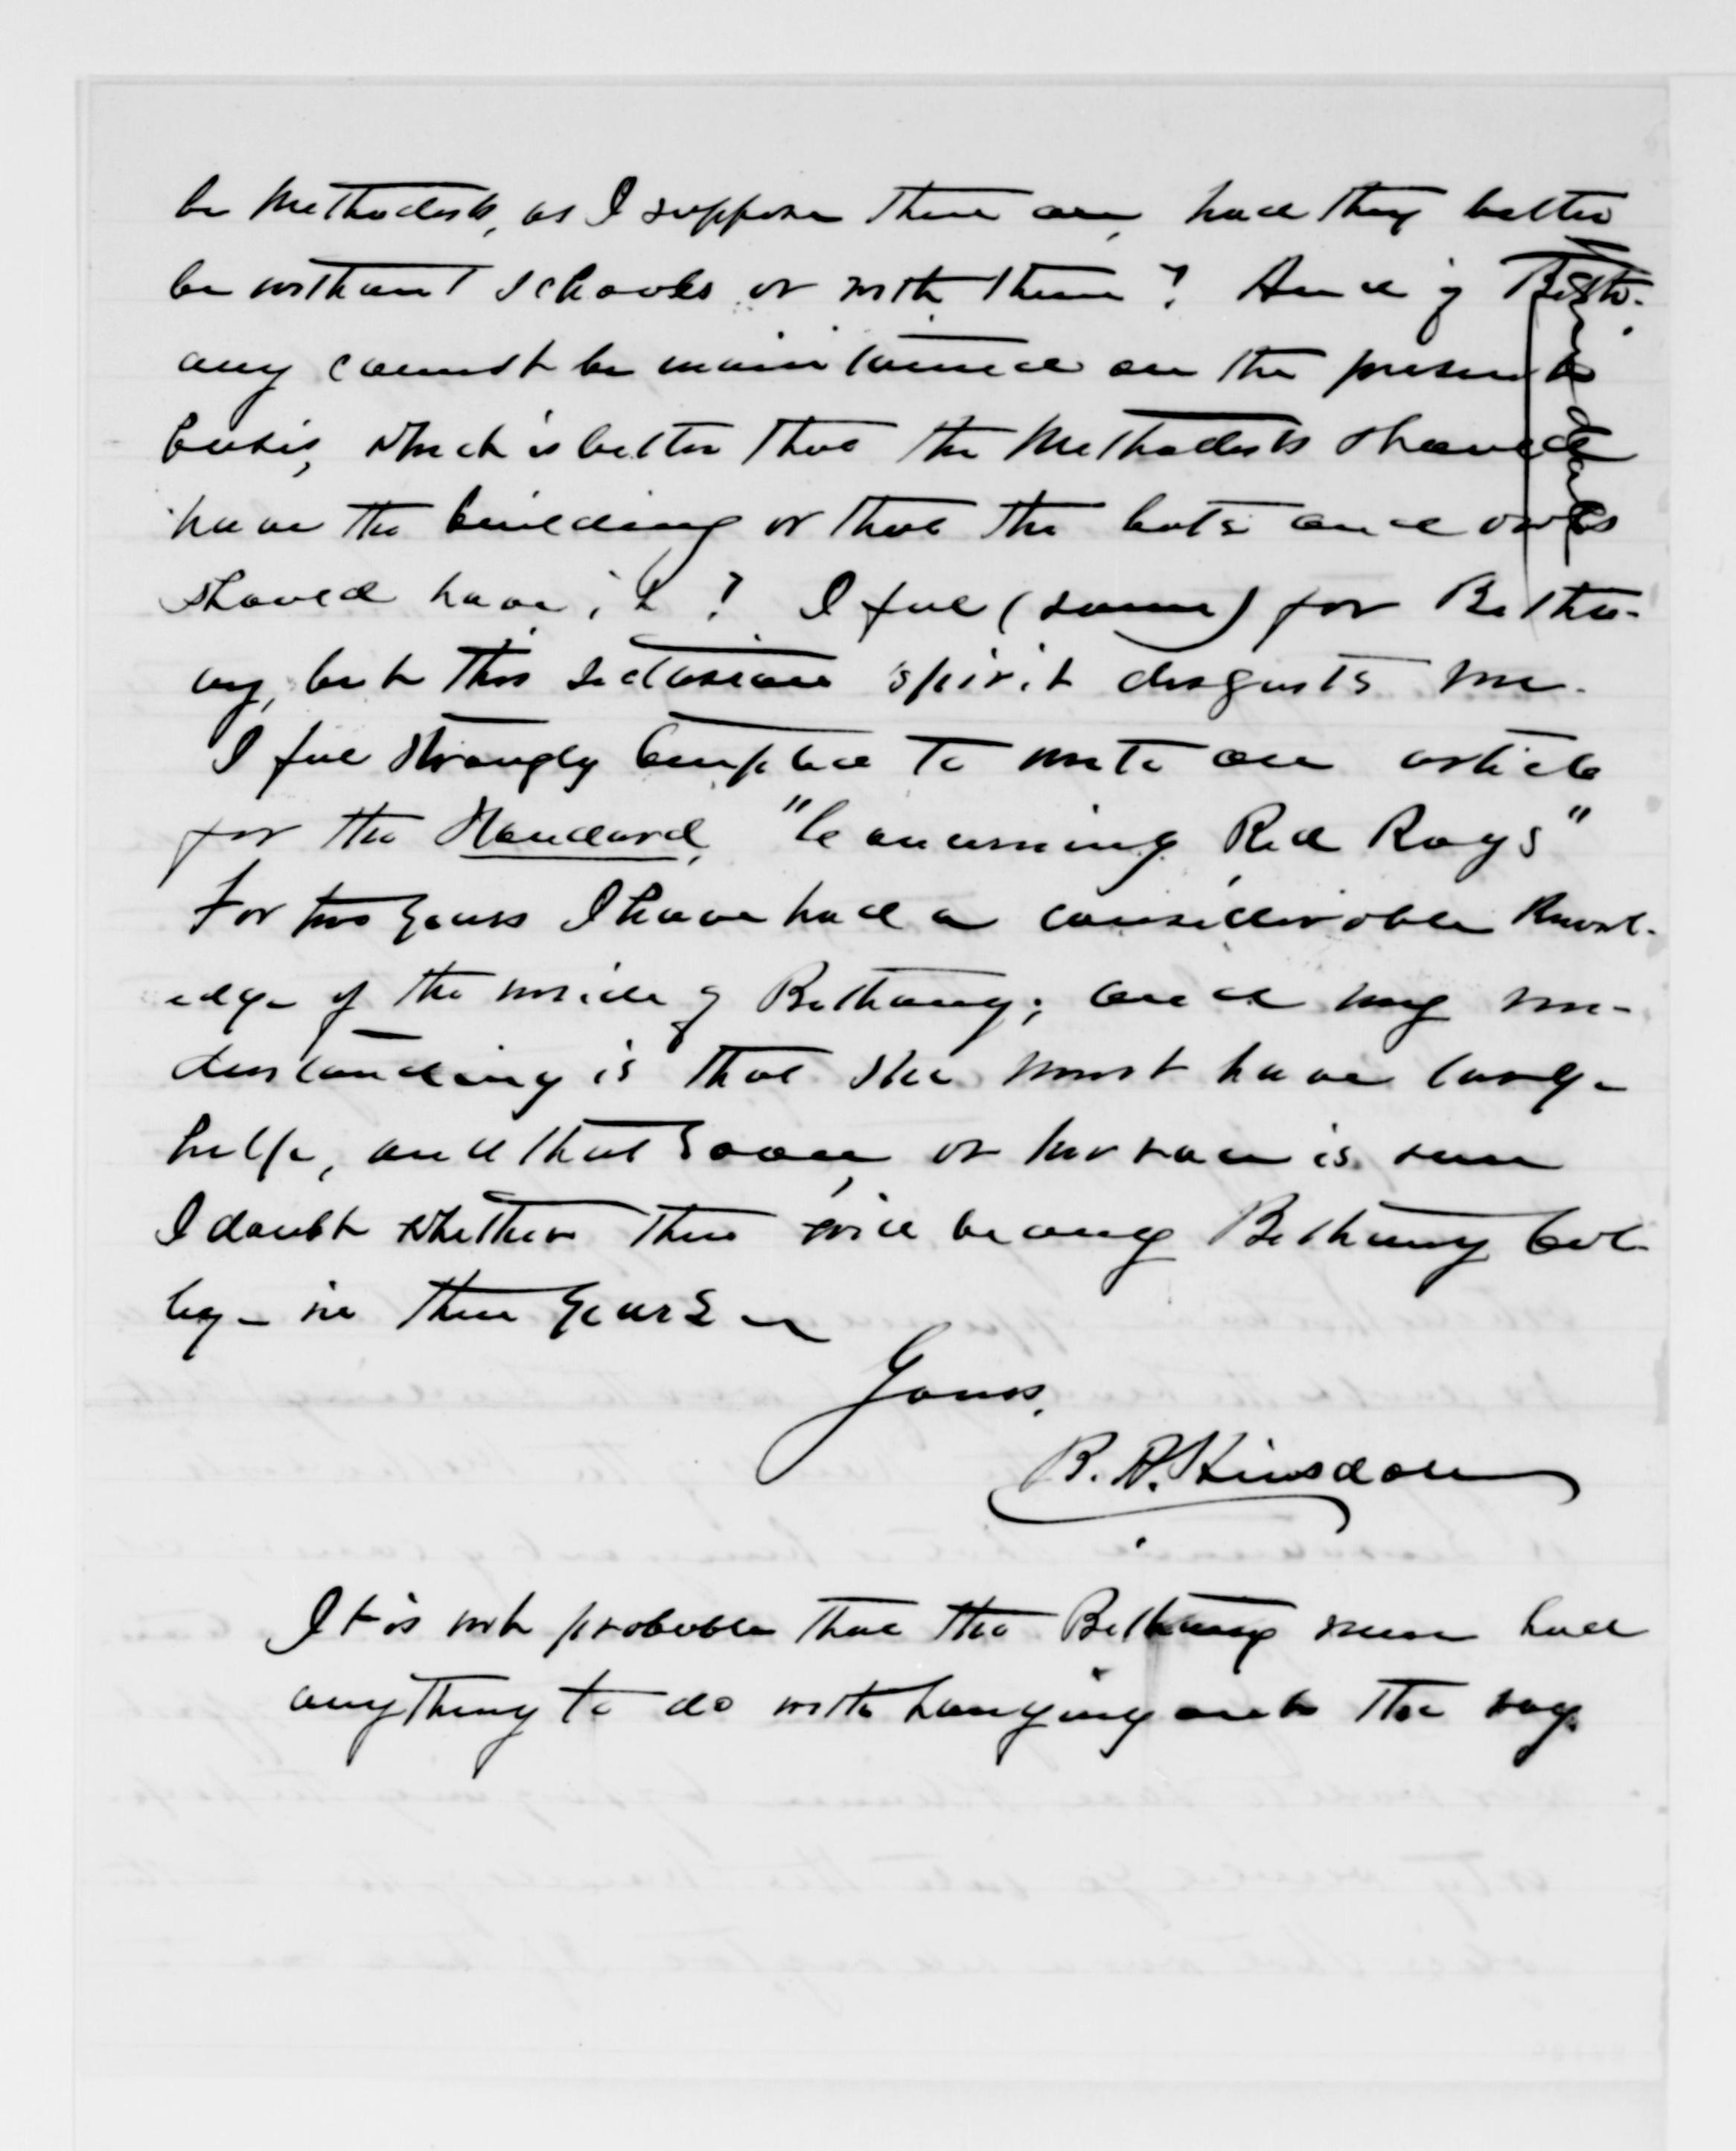 be Methodists, as I suppose there are, had they better
be without schools or with them? And if Beth-
any cannot be maintained on the present
basis, which is better that the Methodists should
have the building or that the bats and owls
should have it? I feel (some) for Betha-
ny, but this sectarian spirit disgusts me.
I feel strongly tempted to write an article
for the Standard, "Concerning Red Rags"
For two years I have had a considerable knowl-
edge of the inside of Bethany; and my un-
derstanding is that she must have large
help, and that soon, or her race is run
I doubt whether there will be any Bethany Col-
lege in three years
Yours,
B. A. Hinsdale
It is not probable that the Bethany men had
anything to do with hanging out the rag.